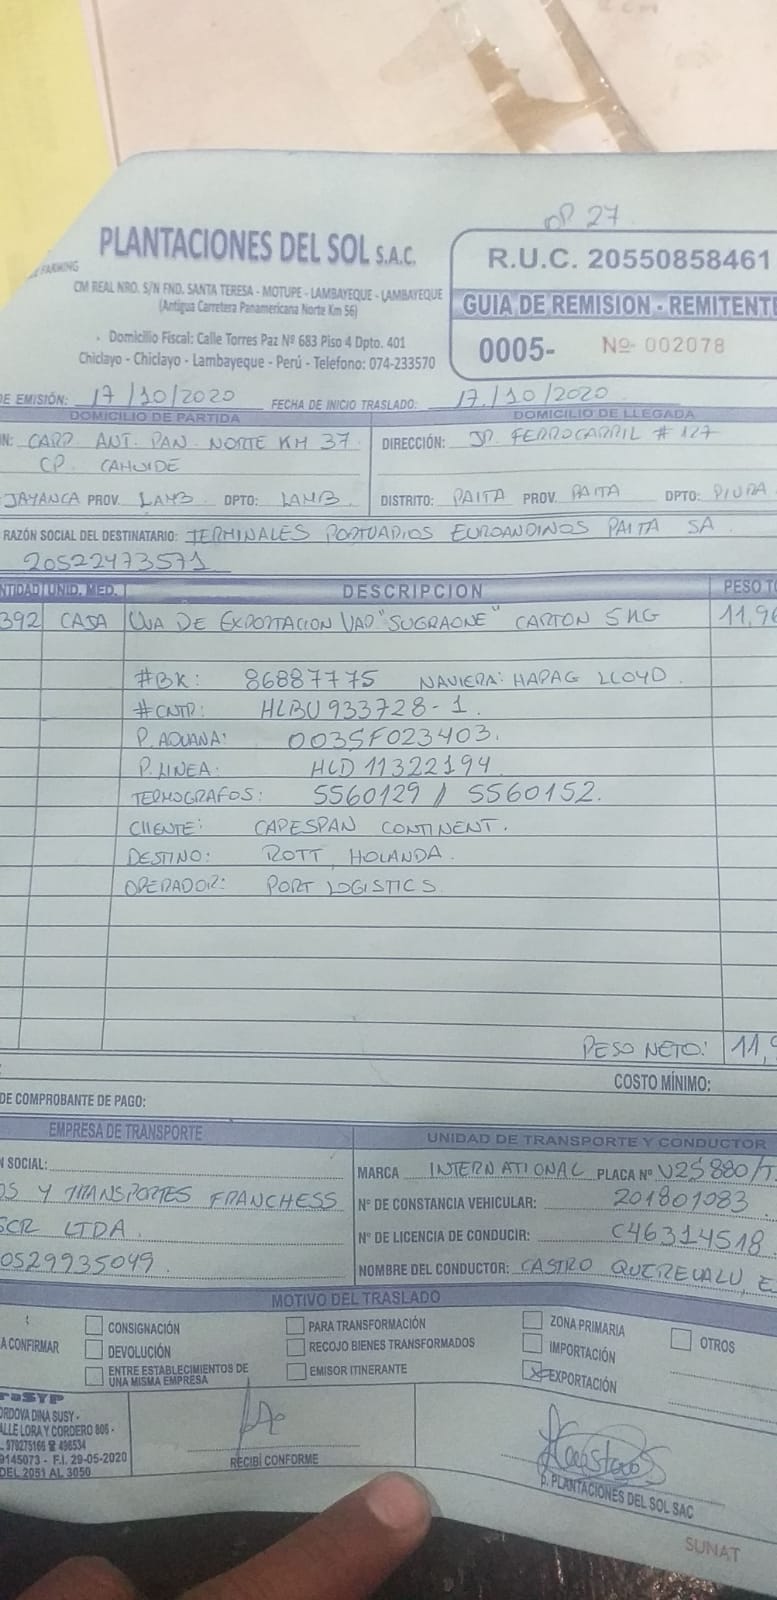 OP 27
FARMING
PLANTACIONES DEL SOL S.A.C.
CM REAL NRO. S/N FND. SANTA TERESA - MOTUPE - LAMBAYEQUE - LAMBAYEQUE
(Antigua Carretera Panamericana Norte Km 56)
Domicilio Fiscal: Calle Torres Paz Nº 683 Piso 4 Dpto. 401
Chiclayo - Chiclayo - Lambayeque - Perú - Telefono: 074-233570
R.U.C. 20550858461
GUIA DE REMISION - REMITENTE
0005- Nº 002078
DE EMISIÓN: 17/10/2020 FECHA DE INICIO TRASLADO: 17/10/2020
DOMICILIO DE PARTIDA DOMICILIO DE LLEGADA
N: CARR. ANT. PAN. NORTE KM 37 DIRECCIÓN: JR. FERROCARRIL # 127
CP. CAHUIDE
JAYANCA PROV. LAMB. DPTO: LAMB. DISTRITO: PAITA PROV. PAITA DPTO: PIURA
RAZÓN SOCIAL DEL DESTINATARIO: TERMINALES PORTUARIOS EUROANDINOS PAITA SA
20522473571
NTIDAD UNID. MED. DESCRIPCION PESO TO
392 CAJA UVA DE EXPORTACION VAR "SUGRAONE" CARTON 5KG 11,96
#BK: 86887775 NAVIERA: HAPAG LLOYD
#CNTR: HLBU 933728-1.
P. ADUANA: 003SF023403.
P. LINEA: HLD 11322194
TERMOGRAFOS: 5560129 / 5560152.
CLIENTE: CAPESPAN CONTINENT.
DESTINO: ROTT, HOLANDA.
OPERADOR: PORT LOGISTICS
PESO NETO: 11,9
COSTO MÍNIMO:
DE COMPROBANTE DE PAGO:
EMPRESA DE TRANSPORTE UNIDAD DE TRANSPORTE Y CONDUCTOR
N SOCIAL: MARCA INTERNATIONAL PLACA Nº V2S880/T
OS Y TRANSPORTES FRANCHESS Nº DE CONSTANCIA VEHICULAR: 201801083
SCR LTDA. Nº DE LICENCIA DE CONDUCIR: C46314518
0529935049 NOMBRE DEL CONDUCTOR: CASTRO QUEREVALU, E
MOTIVO DEL TRASLADO
CONSIGNACIÓN PARA TRANSFORMACIÓN ZONA PRIMARIA OTROS
A CONFIRMAR DEVOLUCIÓN RECOJO BIENES TRANSFORMADOS IMPORTACIÓN
ENTRE ESTABLECIMIENTOS DE UNA MISMA EMPRESA EMISOR ITINERANTE X EXPORTACIÓN
raSYP
ORDOVA DINA SUSY -
ALLE LORA Y CORDERO 806 -
. 979275166 ☎ 496534
9145073 - F.I. 29-05-2020
DEL 2051 AL 3050
RECIBÍ CONFORME
p. PLANTACIONES DEL SOL SAC
SUNAT